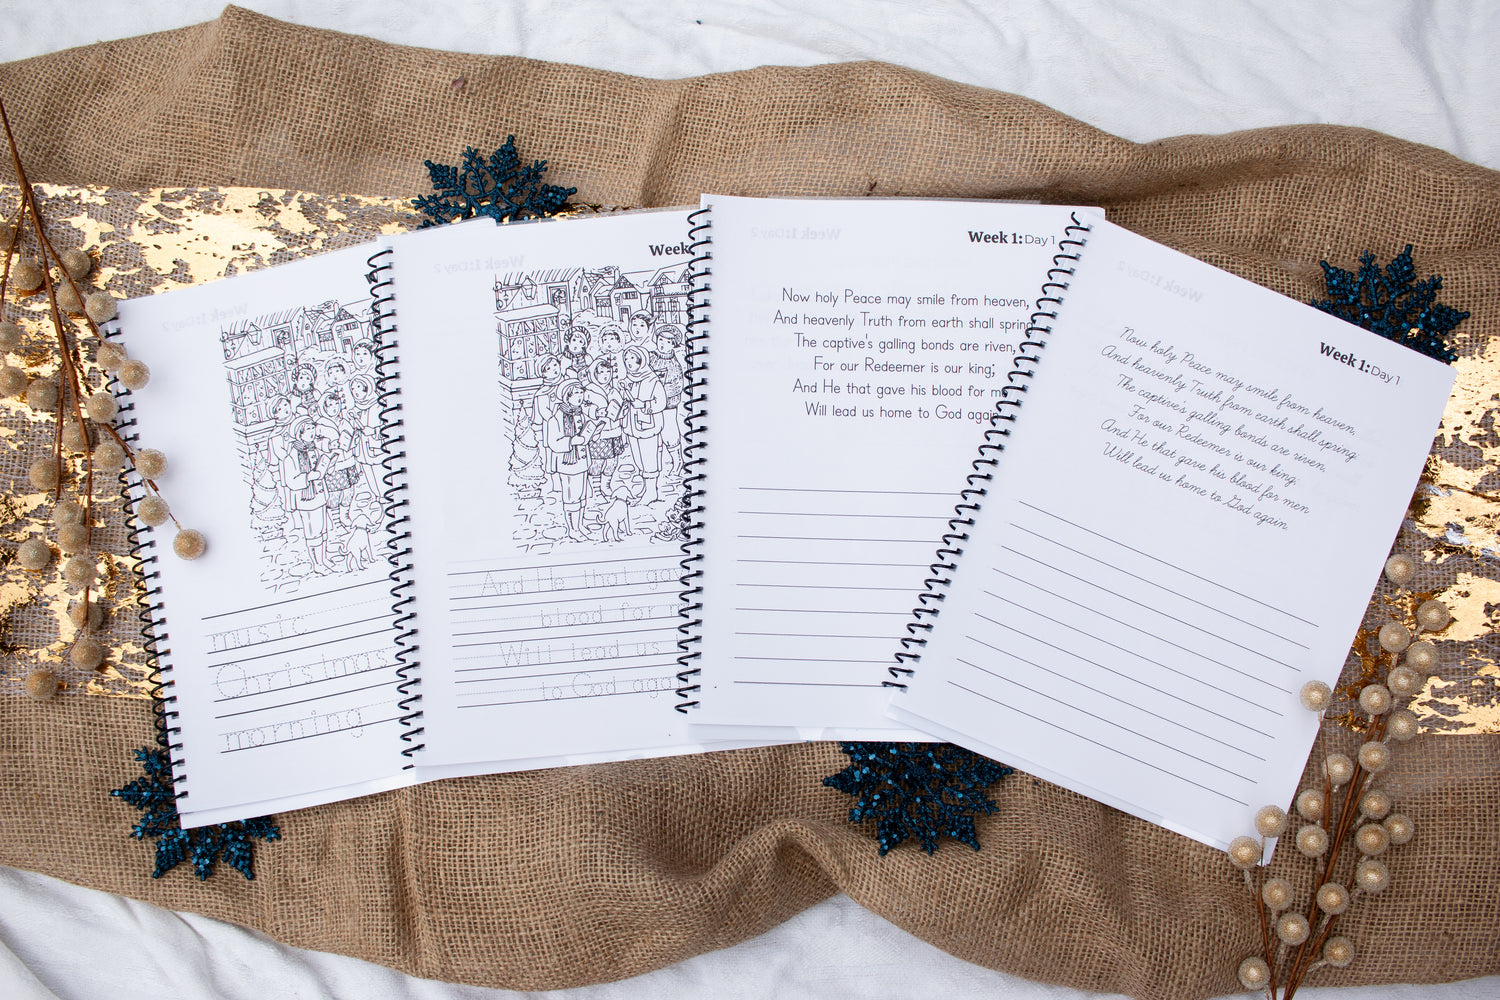 music
Christmas
morning
Week
And He that
blood for
Will lead us
to God
Week 1: Day 1
Now holy Peace may smile from heaven,
And heavenly Truth from earth shall spring
The captive's galling bonds are riven,
For our Redeemer is our king;
And He that gave his blood for
Will lead us home to God again
Week 1: Day 1
Now holy Peace may smile from heaven,
And heavenly Truth from earth shall spring.
The captive's galling bonds are riven,
For our Redeemer is our king;
And He that gave his blood for men
Will lead us home to God again
Week 1: Day 2
Week 1: Day 2
Week 1: Day 2
Week 1: Day 2